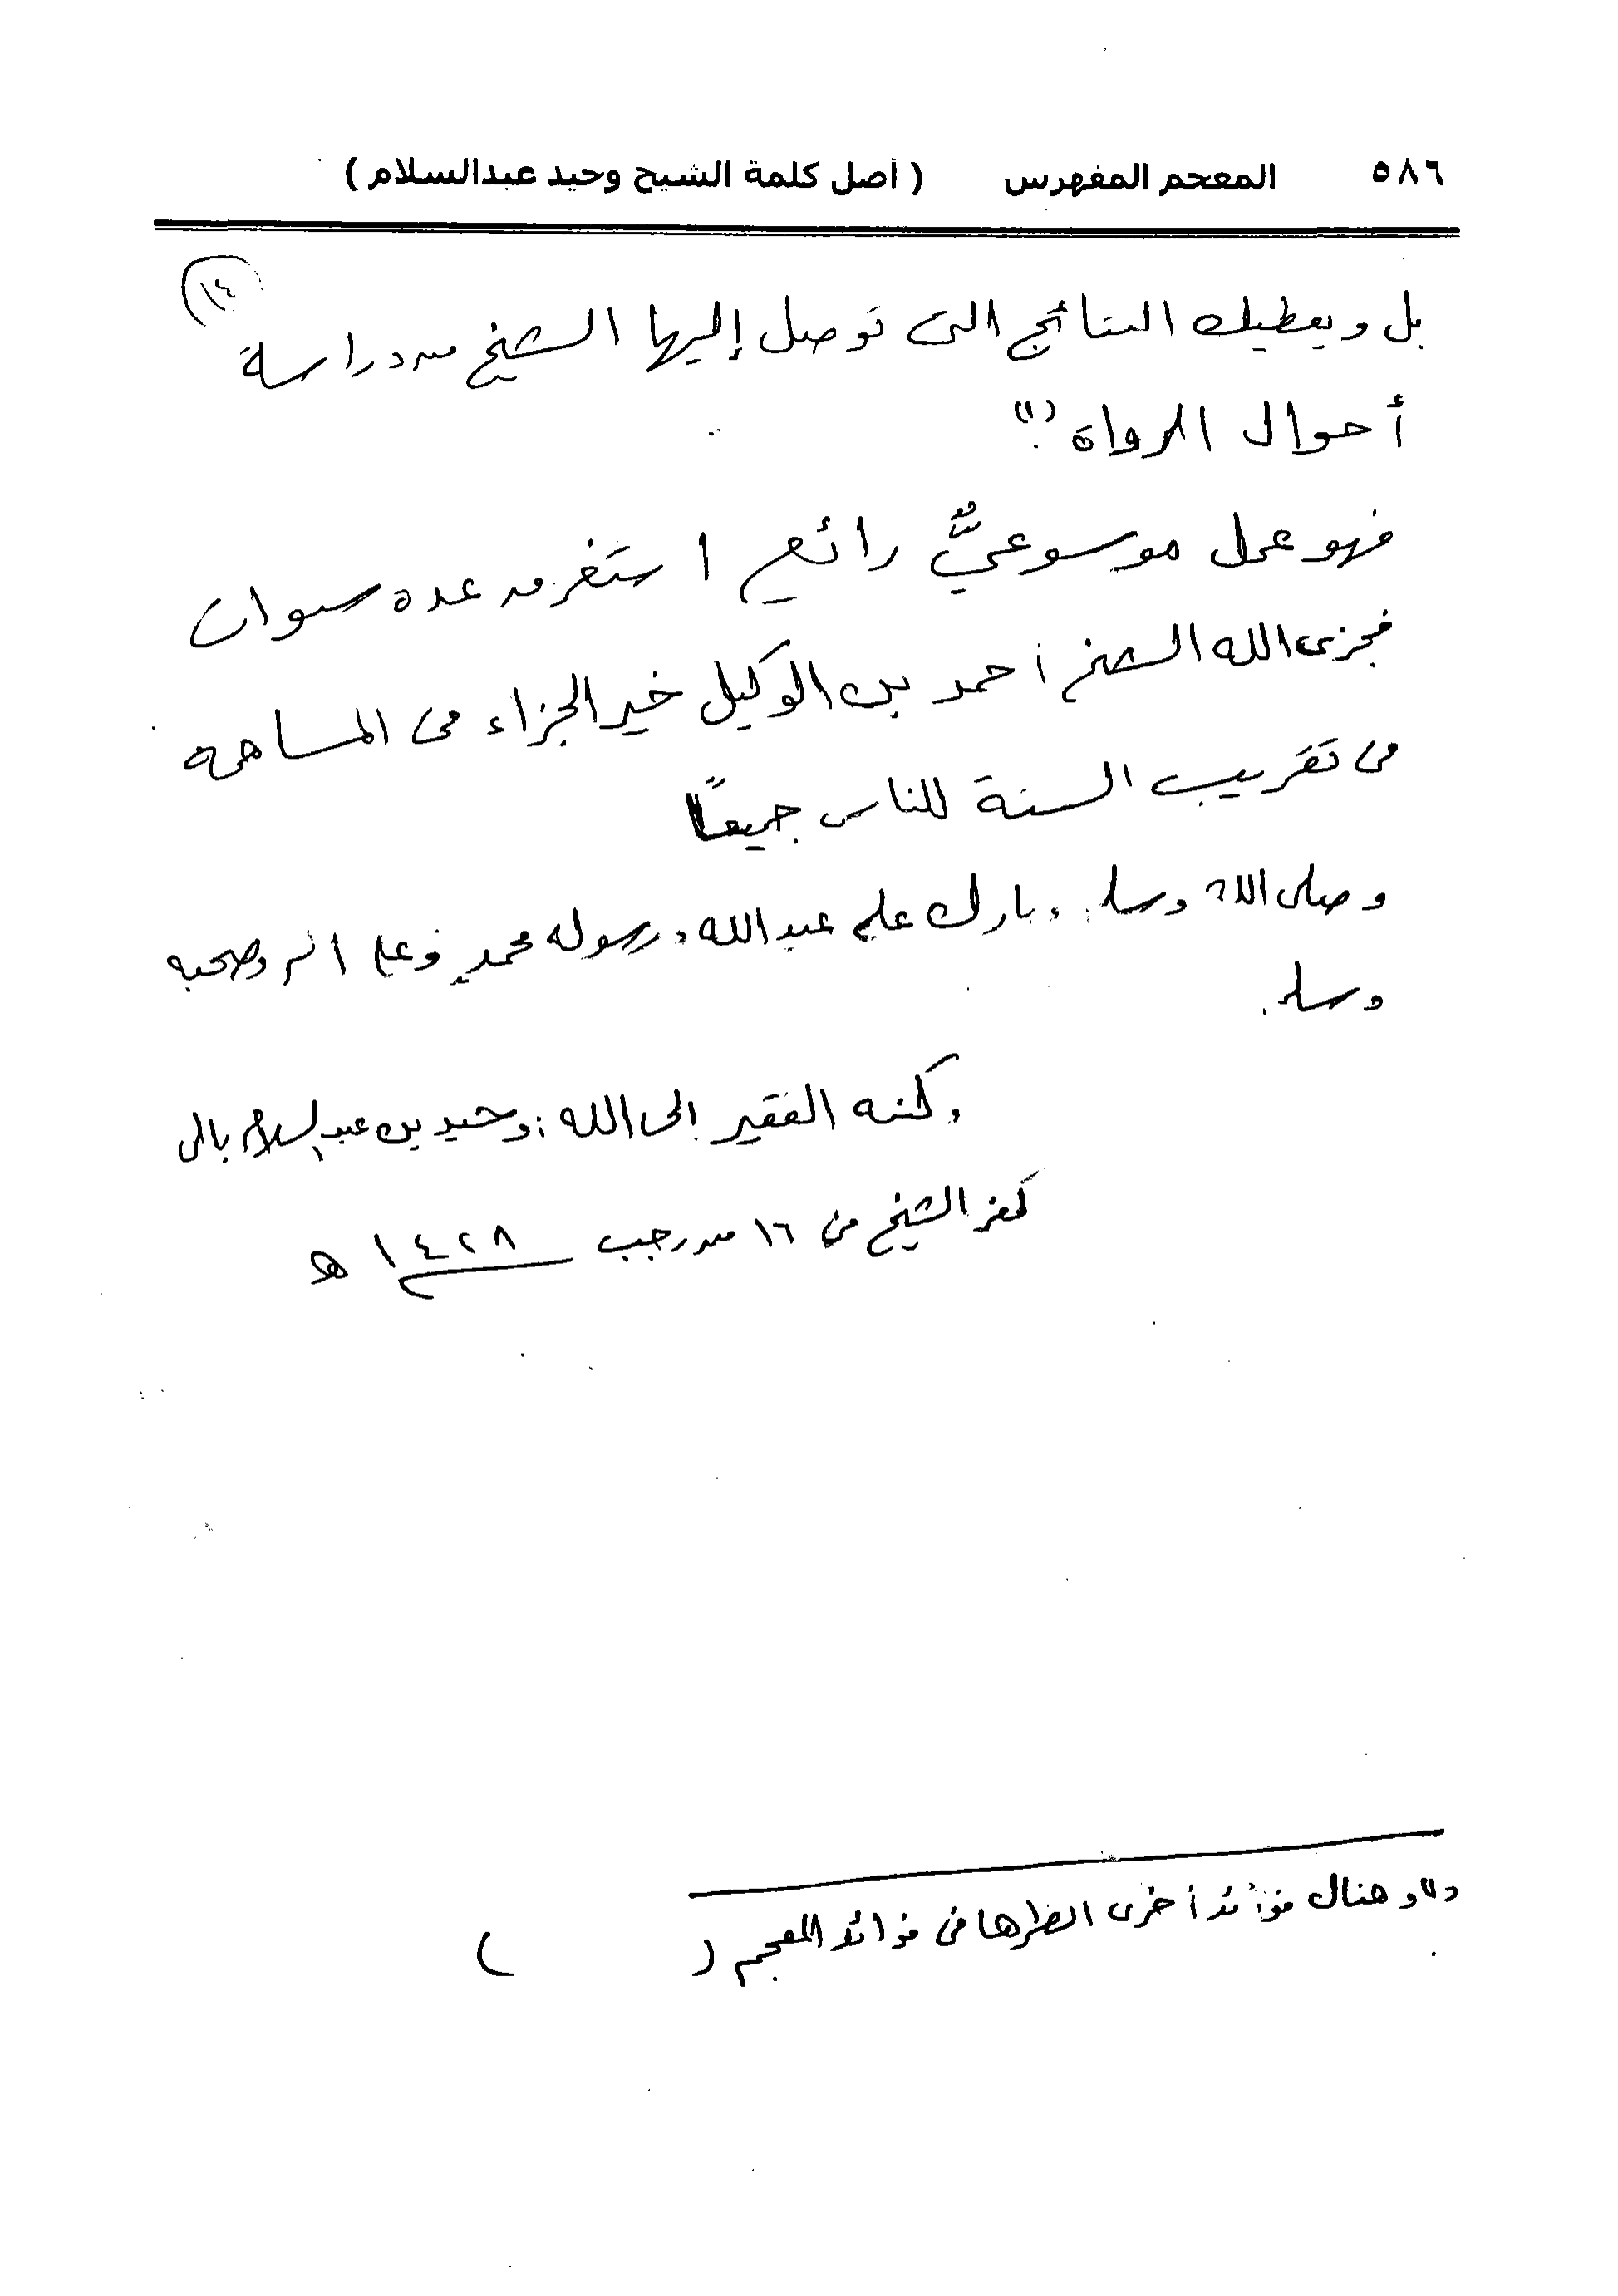 ٥٨٦ المعجم المفهرس ( أصل كلمة الشيخ وحيد عبدالسلام )
(١٤)
بل ويعطيك النتائج التى توصل إليها الشيخ من دراسة
أحوال الرواة (١).
فهو عمل موسوعيٌّ رائع استغرق عدة سنوات
فجزى الله الشيخ أحمد بن الوكيل خير الجزاء فى المساهمة
فى تقريب السنة للناس جميعًا
وصلى الله وسلم وبارك على عبد الله ورسوله محمدٍ وعلى آله وصحبه
وسلم.
وكتبه الفقير إلى الله: وحيد بن عبد السلام بالى
كفر الشيخ فى ١٦ من رجب ١٤٢٨ هـ
(١) وهناك فوائد أخرى انظرها فى فوائد المعجم ( )